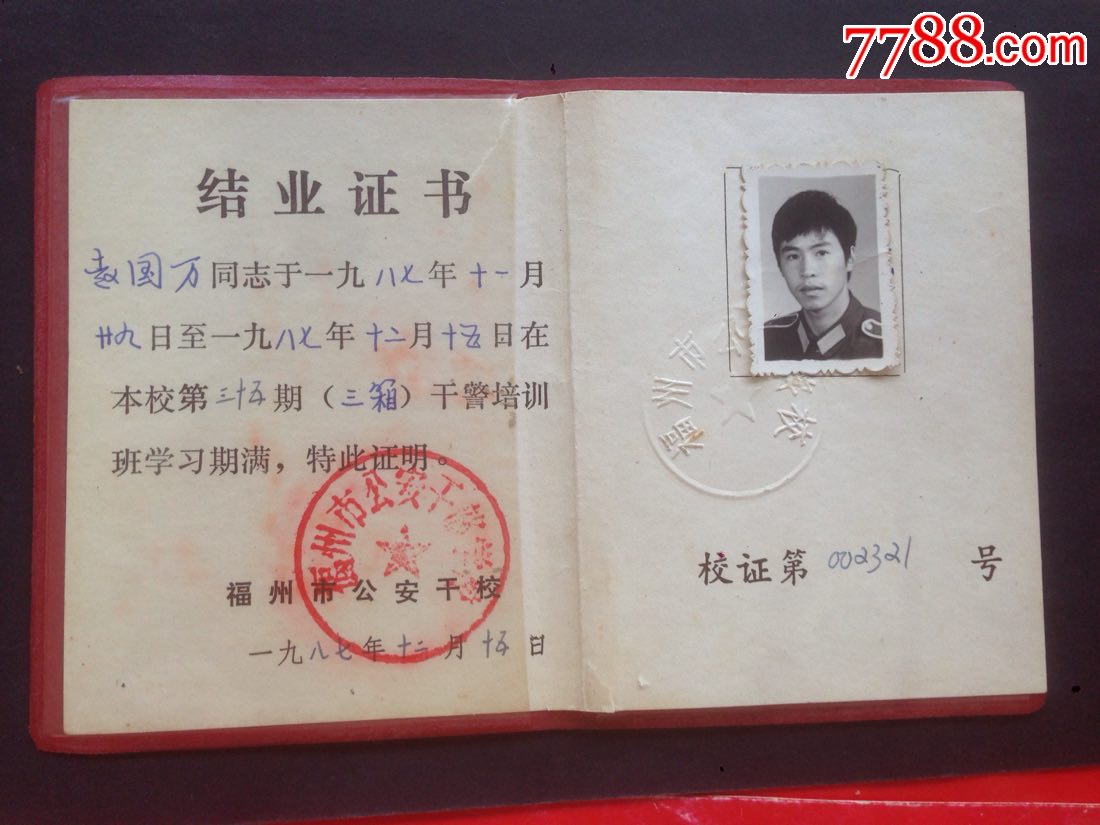 7788.com
结业证书
赵国万同志于一九八七年十一月
廿九日至一九八七年十二月十五日在
本校第三十五期（三　）干警培训
班学习期满，特此证明。
福州市公安干
福州市公安干校
一九八七年十二月十五日
福州市公安干校
校证第002321号